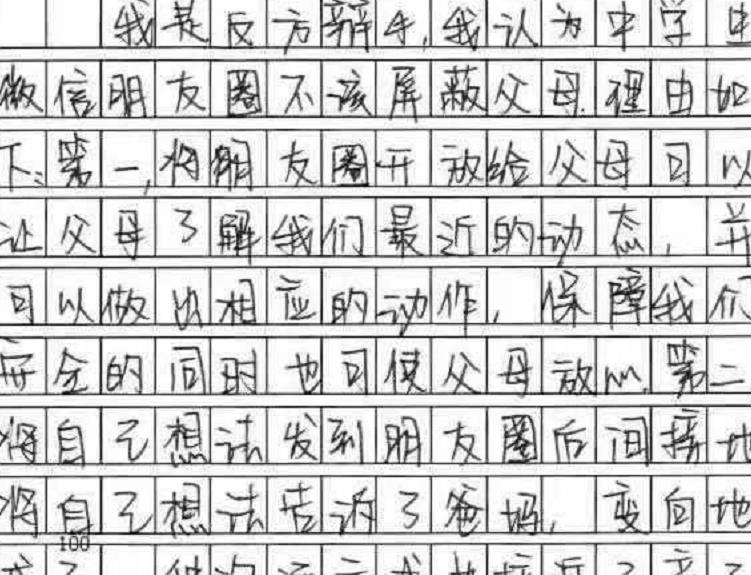 我是反方辩手,我认为中学生
微信朋友圈不该屏蔽父母.理由如
下:第一,将朋友圈开放给父母可以
让父母了解我们最近的动态,并
可以做出相应的动作,保障我们
安全的同时也可使父母放心.第二
将自己想法发到朋友圈后间接地
将自己想法告诉了爸妈,变向地
100